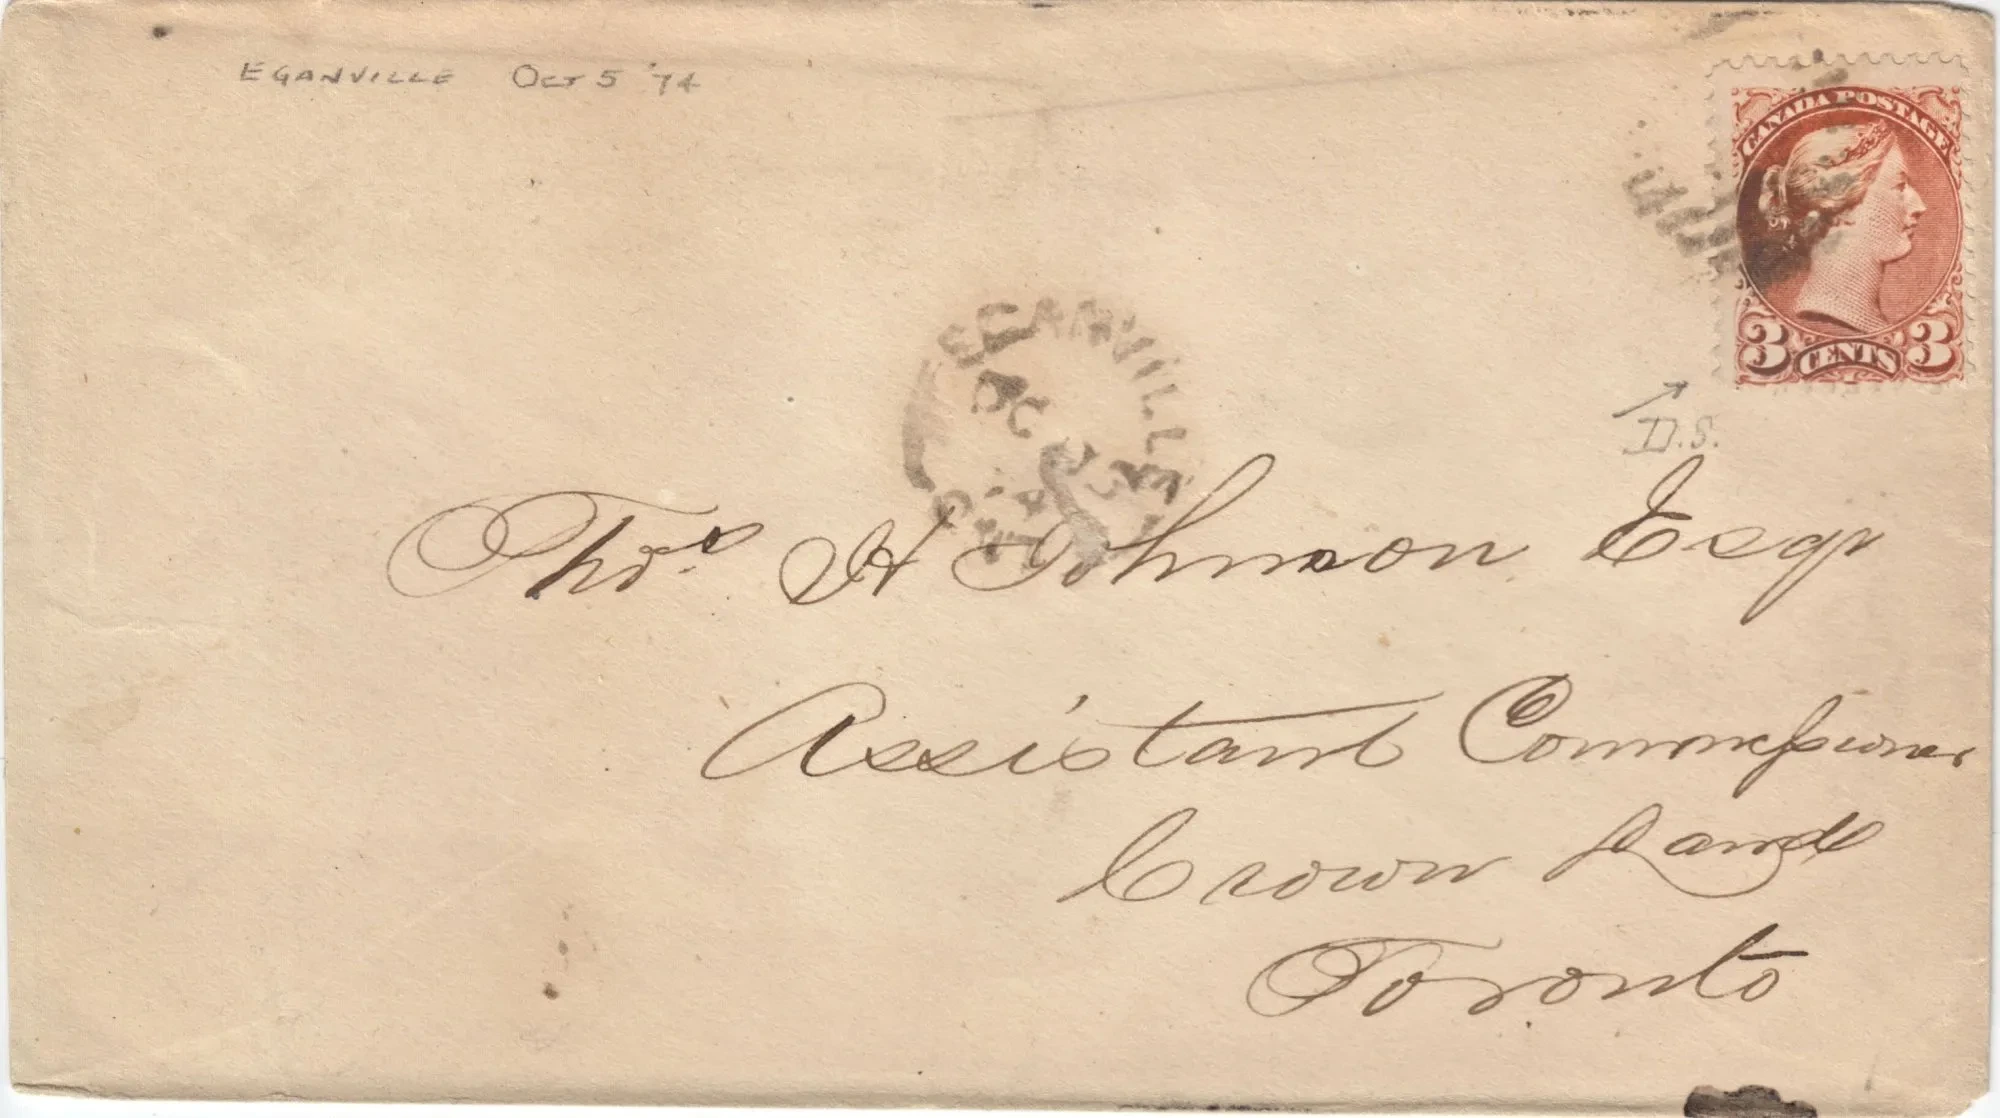 EGANVILLE Oct 5 '74
CANADA POSTAGE
3 CENTS 3
D.S.
EGANVILLE
OC 5
Thos. H Johnson Esqr
Assistant Commissioner
Crown Lands
Toronto